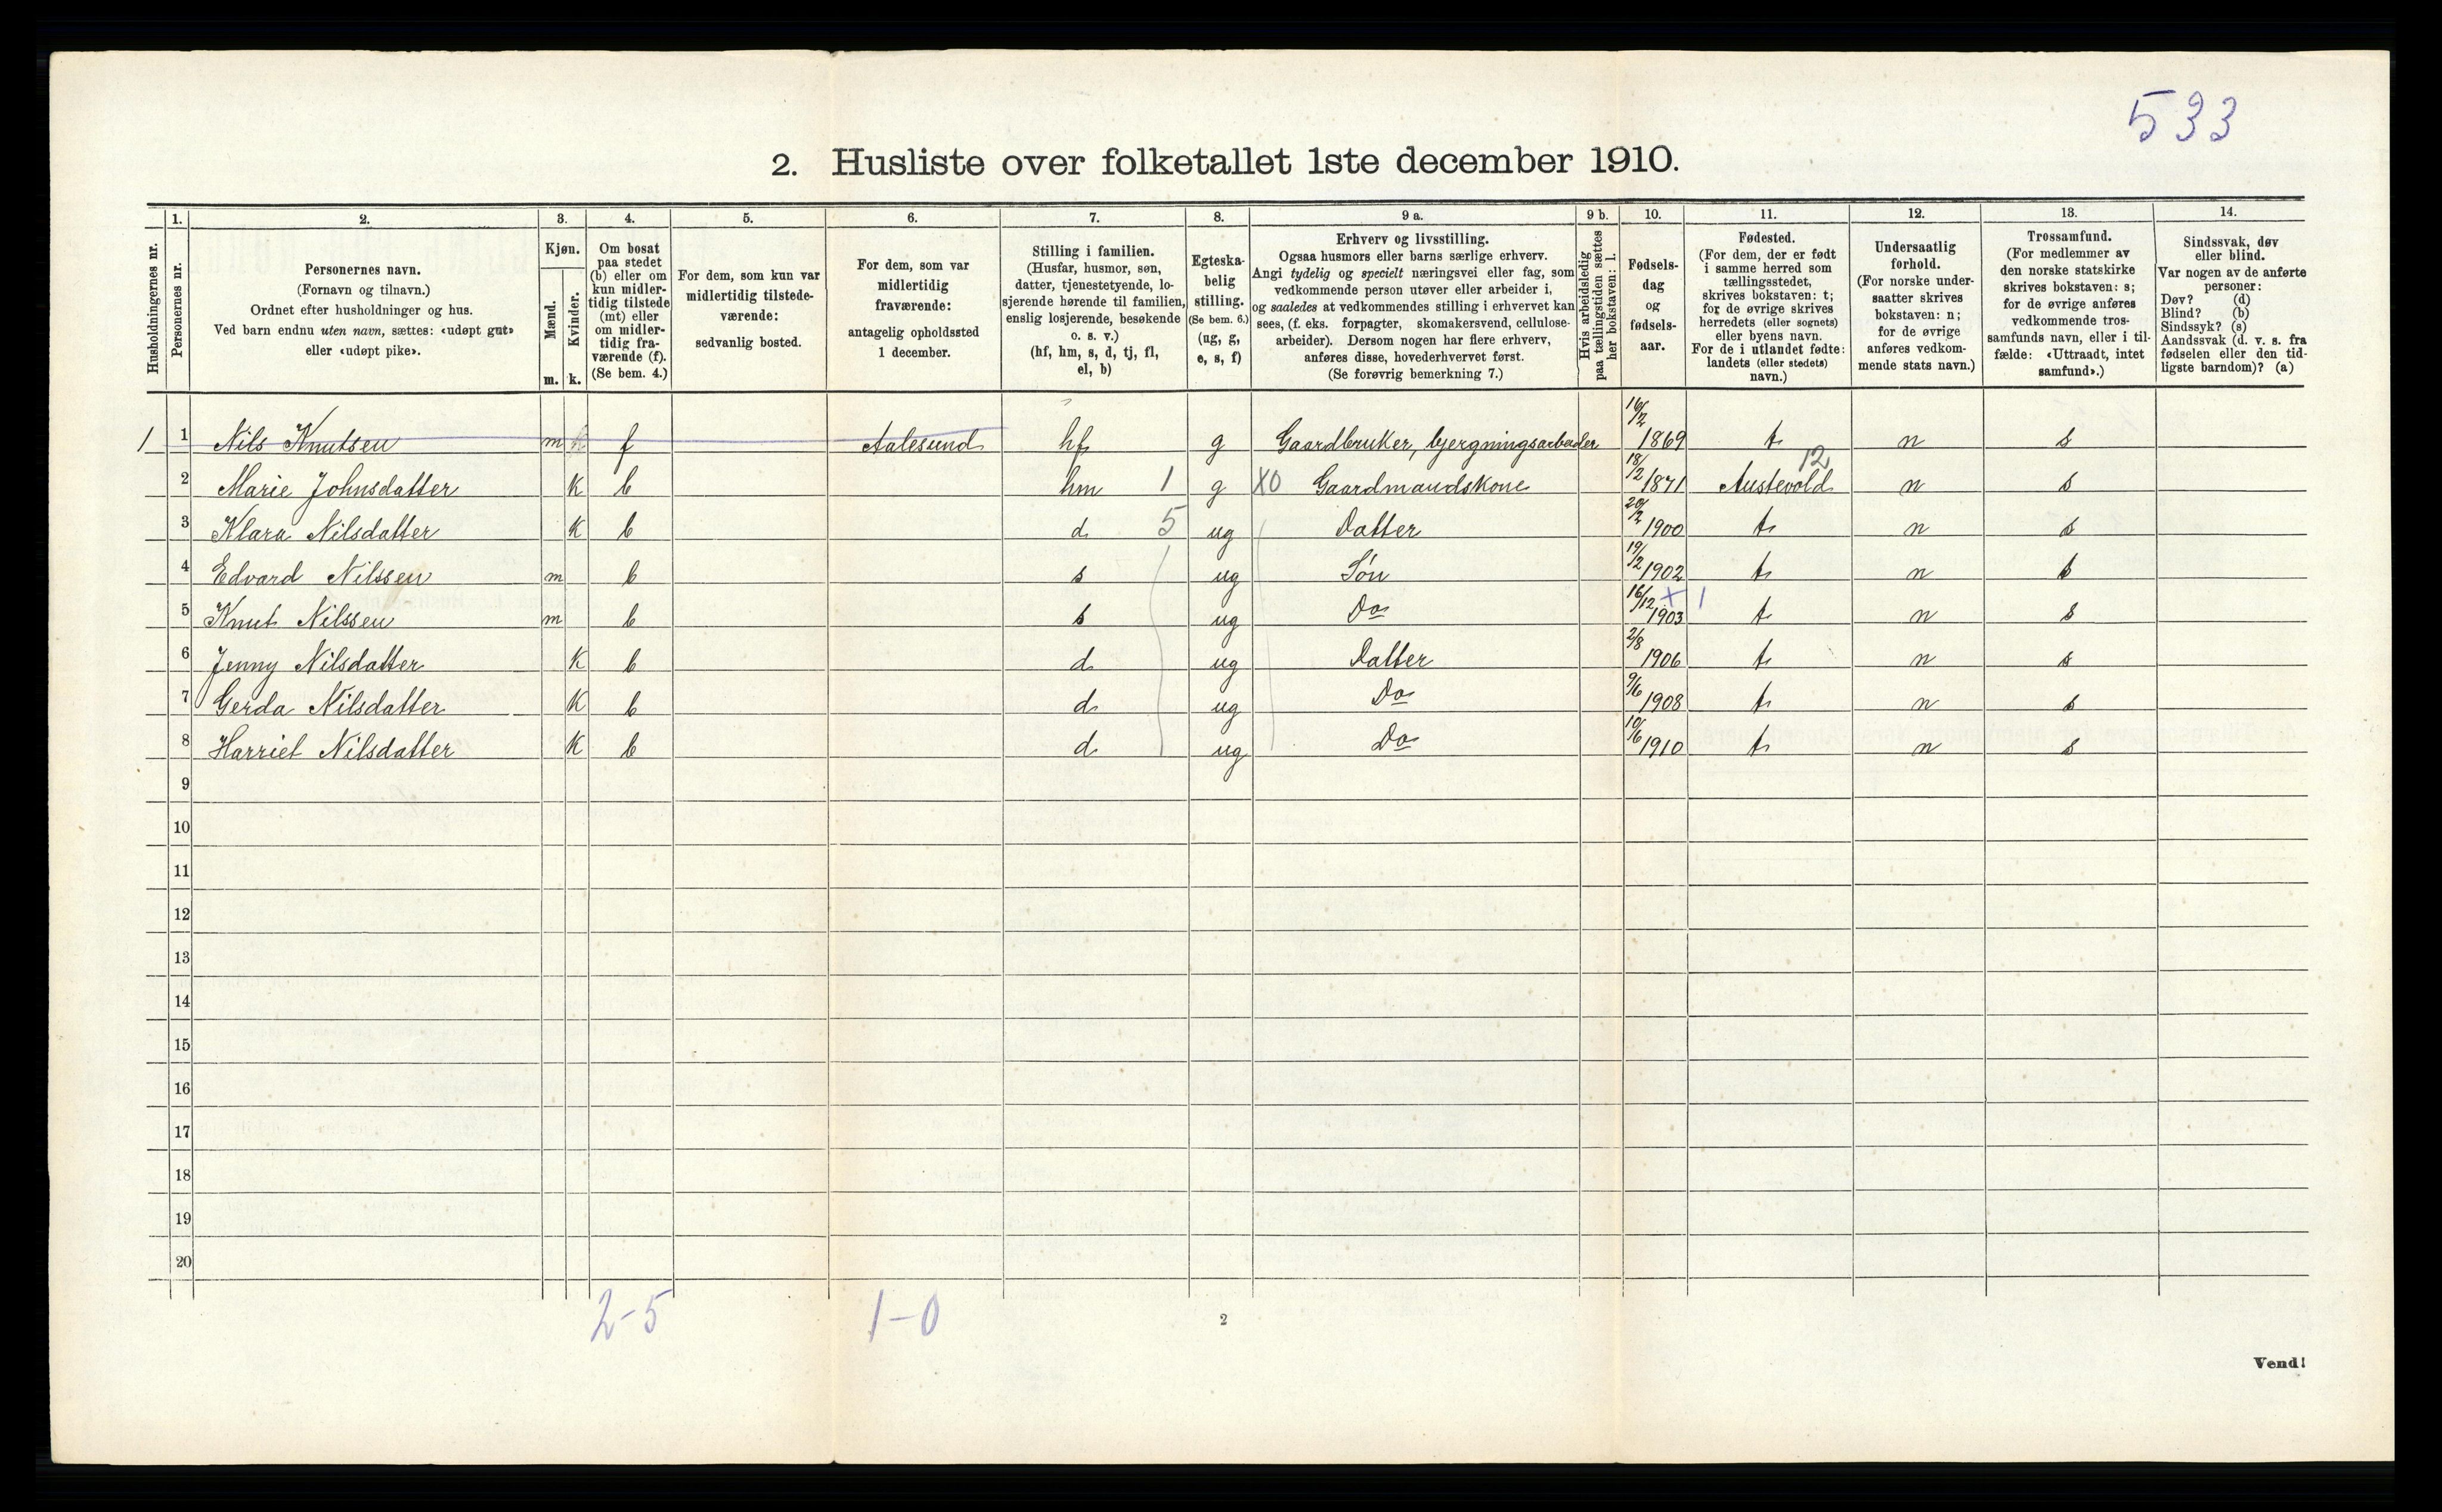 533
2. Husliste over folketallet 1ste december 1910.
1. 2. 3. 4. 5. 6. 7. 8. 9 a. 9 b. 10. 11. 12. 13. 14.
Husholdningernes nr.
Personernes nr.
Personernes navn.
(Fornavn og tilnavn.)
Ordnet efter husholdninger og hus.
Ved barn endnu uten navn, sættes: «udøpt gut»
eller «udøpt pike».
Kjøn.
Mænd.
Kvinder.
m. k.
Om bosat
paa stedet
(b) eller om
kun midler-
tidig tilstede
(mt) eller
om midler-
tidig fra-
værende (f).
(Se bem. 4.)
For dem, som kun var
midlertidig tilstede-
værende:
sedvanlig bosted.
For dem, som var
midlertidig
fraværende:
antagelig opholdssted
1 december.
Stilling i familien.
(Husfar, husmor, søn,
datter, tjenestetyende, lo-
sjerende hørende til familien,
enslig losjerende, besøkende
o. s. v.)
(hf, hm, s, d, tj, fl,
el, b)
Egteska-
belig
stilling.
(Se bem. 6.)
(ug, g,
e, s, f)
Erhverv og livsstilling.
Ogsaa husmors eller barns særlige erhverv.
Angi tydelig og specielt næringsvei eller fag, som
vedkommende person utøver eller arbeider i,
og saaledes at vedkommendes stilling i erhvervet kan
sees, (f. eks. forpagter, skomakersvend, cellulose-
arbeider). Dersom nogen har flere erhverv,
anføres disse, hovederhvervet først.
(Se forøvrig bemerkning 7.)
Hvis arbeidsledig
paa tællingstiden sættes
her bokstaven: l.
Fødsels-
dag
og
fødsels-
aar.
Fødested.
(For dem, der er født
i samme herred som
tællingsstedet,
skrives bokstaven: t;
for de øvrige skrives
herredets (eller sognets)
eller byens navn.
For de i utlandet fødte:
landets (eller stedets)
navn.)
Undersaatlig
forhold.
(For norske under-
saatter skrives
bokstaven: n;
for de øvrige
anføres vedkom-
mende stats navn.)
Trossamfund.
(For medlemmer av
den norske statskirke
skrives bokstaven: s;
for de øvrige anføres
vedkommende tros-
samfunds navn, eller i til-
fælde: «Uttraadt, intet
samfund».)
Sindssvak, døv
eller blind.
Var nogen av de anførte
personer:
Døv? (d)
Blind? (b)
Sindssyk? (s)
Aandssvak (d. v. s. fra
fødselen eller den tid-
ligste barndom)? (a)
1 1 Nils Knutsen m f Aalesund hf g Gaardbruker, bjergningsarbeider 16/2 1869 t n s
2 Marie Johnsdatter K b hm 1 g X0 Gaardmandskone 18/2 1871 Austevold 12 n s
3 Klara Nilsdatter K b d 5 ug Datter 20/2 1900 t n s
4 Edvard Nilssen m b s ug Søn 19/2 1902 t n s
5 Knut Nilssen m b s ug Do 16/12 1903 + 1 t n s
6 Jenny Nilsdatter K b d ug Datter 2/8 1906 t n s
7 Gerda Nilsdatter K b d ug Do 9/6 1908 t n s
8 Harriet Nilsdatter K b d ug Do 10/6 1910 t n s
9
10
11
12
13
14
15
16
17
18
19
20
2-5 1-0
2
Vend!